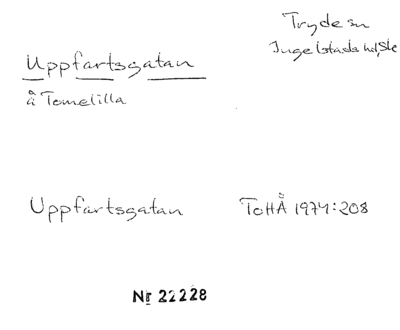 Tryde sn
Ingelstads hd, Sk
Uppfartsgatan
å Tomelilla
Uppfartsgatan TOHÅ 1974:208
Nr 22228